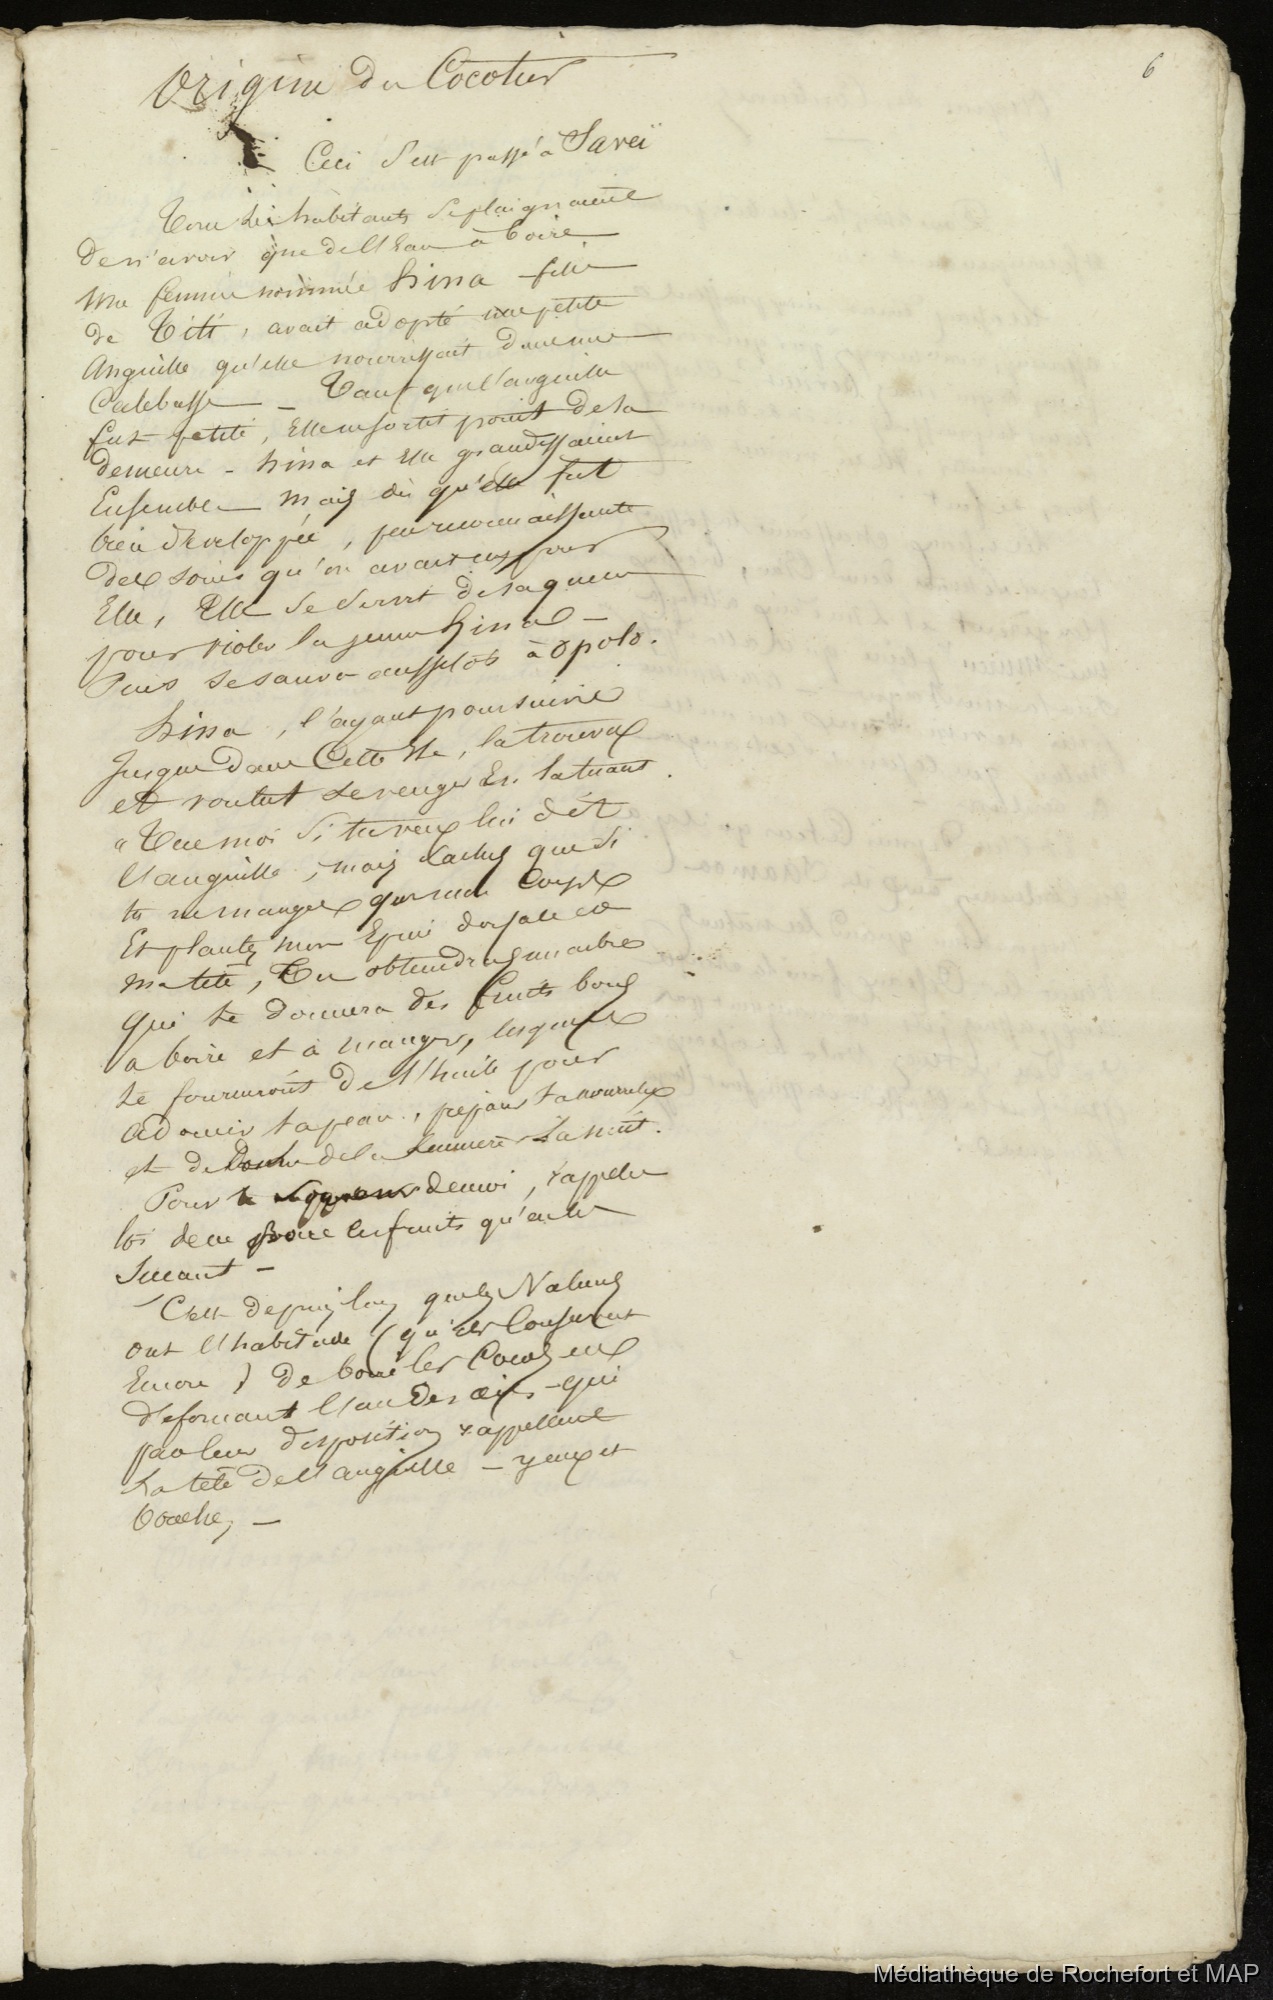 6
Origine du Cocotier
Ceci s'est passé à Savaï
Tous les habitants se plaignaient
de n'avoir que de l'Eau à boire
Une femme nommée hina - fille
de Titi, avait adopté une petite
Anguille qu'elle nourrissait dans une
Calebasse — Tant que l'anguille
fut petite, Elle ne sortit point de sa
demeure - hina et Elle grandissaient
Ensemble — Mais dès qu'elle fut
bien développée, peu reconnaissante
des soins qu'on avait eus pour
Elle, Elle se servit de sa queue
pour violer la jeune hina —
Puis se sauva aussitôt à Opolo.
hina, l'ayant poursuivie
Jusque dans Cette Ile, la trouva
et voulut se venger En la tuant.
" Tue moi si tu veux lui dit
l'anguille, mais saches que si
tu ne manges que mon Corps
Et plantes mon Epine dorsale et
ma tête, Tu obtiendras un arbre
qui te donnera des fruits bons
a boire et à manger, lesquels
te fourniront de l'huile pour
adoucir ta peau, préparer ta nourriture
et de la lumière la nuit.
Pour te de moi, rappelle
toi de ne boire les fruits qu'en les
suçant —
C'est depuis lors que les Naturels
ont l'habitude (qu'ils Conservent
Encore) de boire les Cocos en
défonçant l'un des œils - qui
par leur disposition rappellent
la tête de l'anguille — yeux et
bouche, —
Médiathèque de Rochefort et MAP